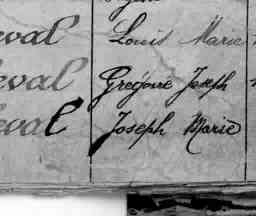 eval Louis Marie
eval Grégoire Joseph
eval Joseph Marie